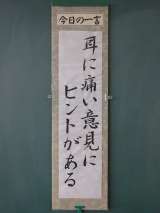 今日の一言
耳に痛い意見に
ヒントがある